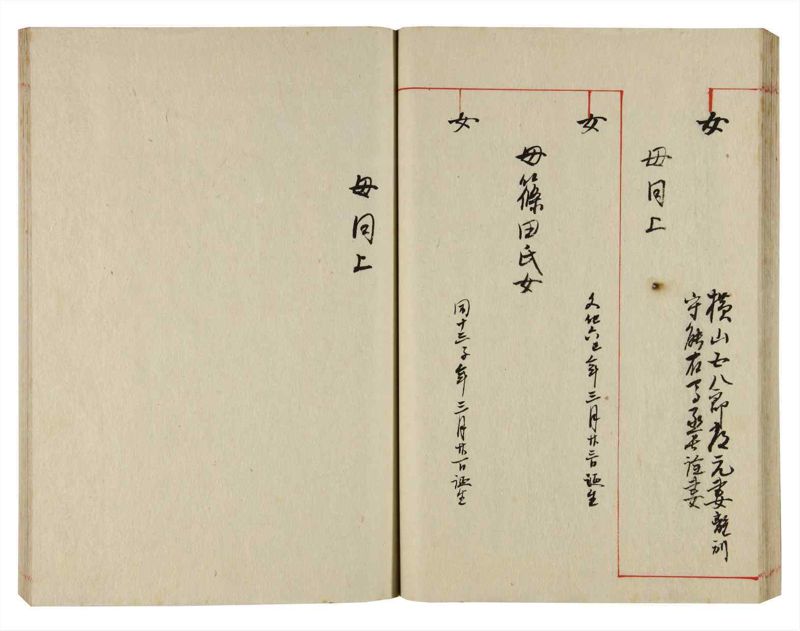 女
母同上
横山七八郎元妻離別
守能右
女
文化六巳年三月廿三日誕生
母篠田氏女
女
同十三子年三月廿一日誕生
母同上